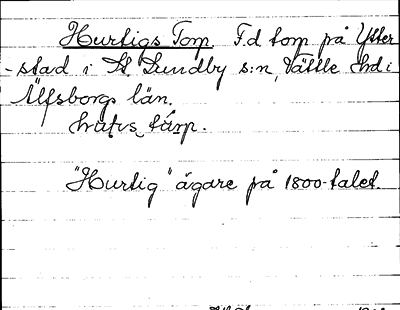 Hurtigs Torp. F.d torp på Ytter
-stad i St. Lundby s:n, Vättle hd i
Älfsborgs län.
"Hurtig" ägare på 1800-talet.